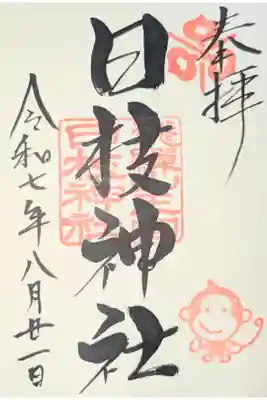 奉拝
日枝神社
日枝神社
令和七年八月廿一日